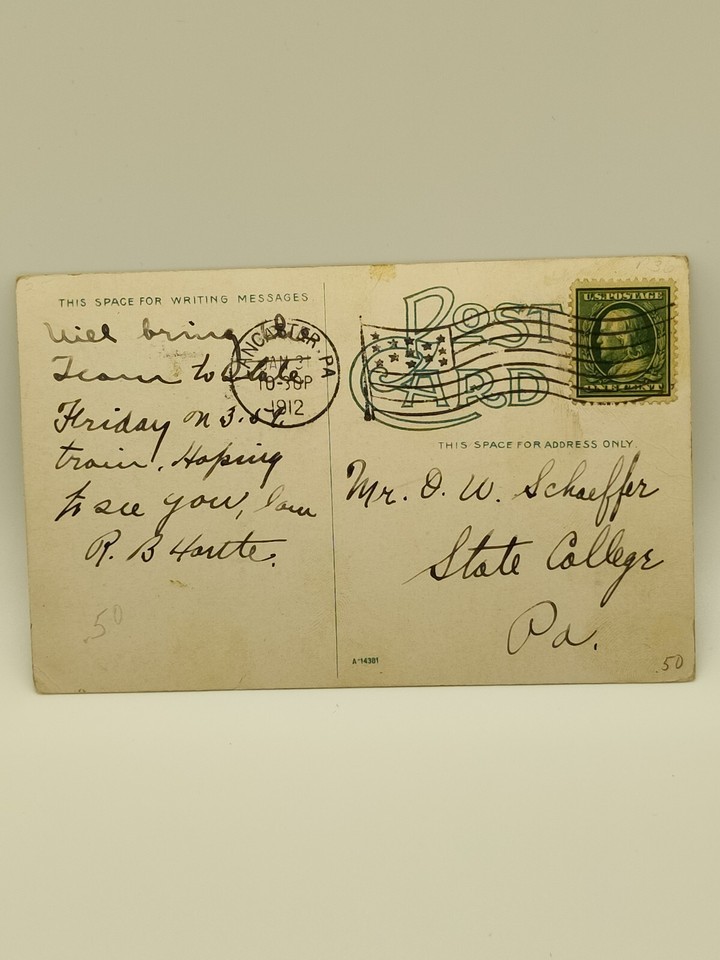 THIS SPACE FOR WRITING MESSAGES
Will bring
Team to State
Friday on 3.
train. Hoping
to see you, I am
R. B
POST
CARD
LANCASTER, PA
JAN 31
10-30P
1912
U.S. POSTAGE
THIS SPACE FOR ADDRESS ONLY.
Mr. D. W. Schaeffer
State College
Pa.
A-14301
.50
.50